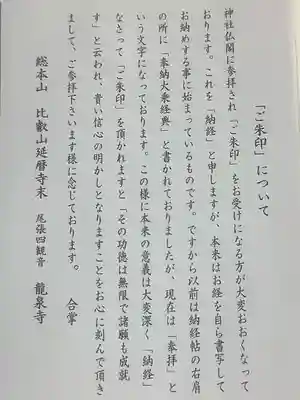 「ご朱印」について
神社仏閣に参拝され『ご朱印』をお受けになる方が大変おおくなって
おります。これを「納経」と申しますが、本来はお経を自ら書写して
お納めする事に始まっているものです。ですから以前は納経帖の右肩
の所に「奉納大乗経典」と書かれておりましたが、現在は「奉拝」と
いう文字になっております。この様に本来の意義は大変深く「納経」
なさって『ご朱印』を頂かれますと「その功徳は無限で諸願も成就
す」と云われ、貴い信心の明かしとなりますことをお心に刻んで頂き
まして、ご参拝下さいます様に念じております。　合掌
総本山　比叡山延暦寺末　尾張四観音　龍泉寺